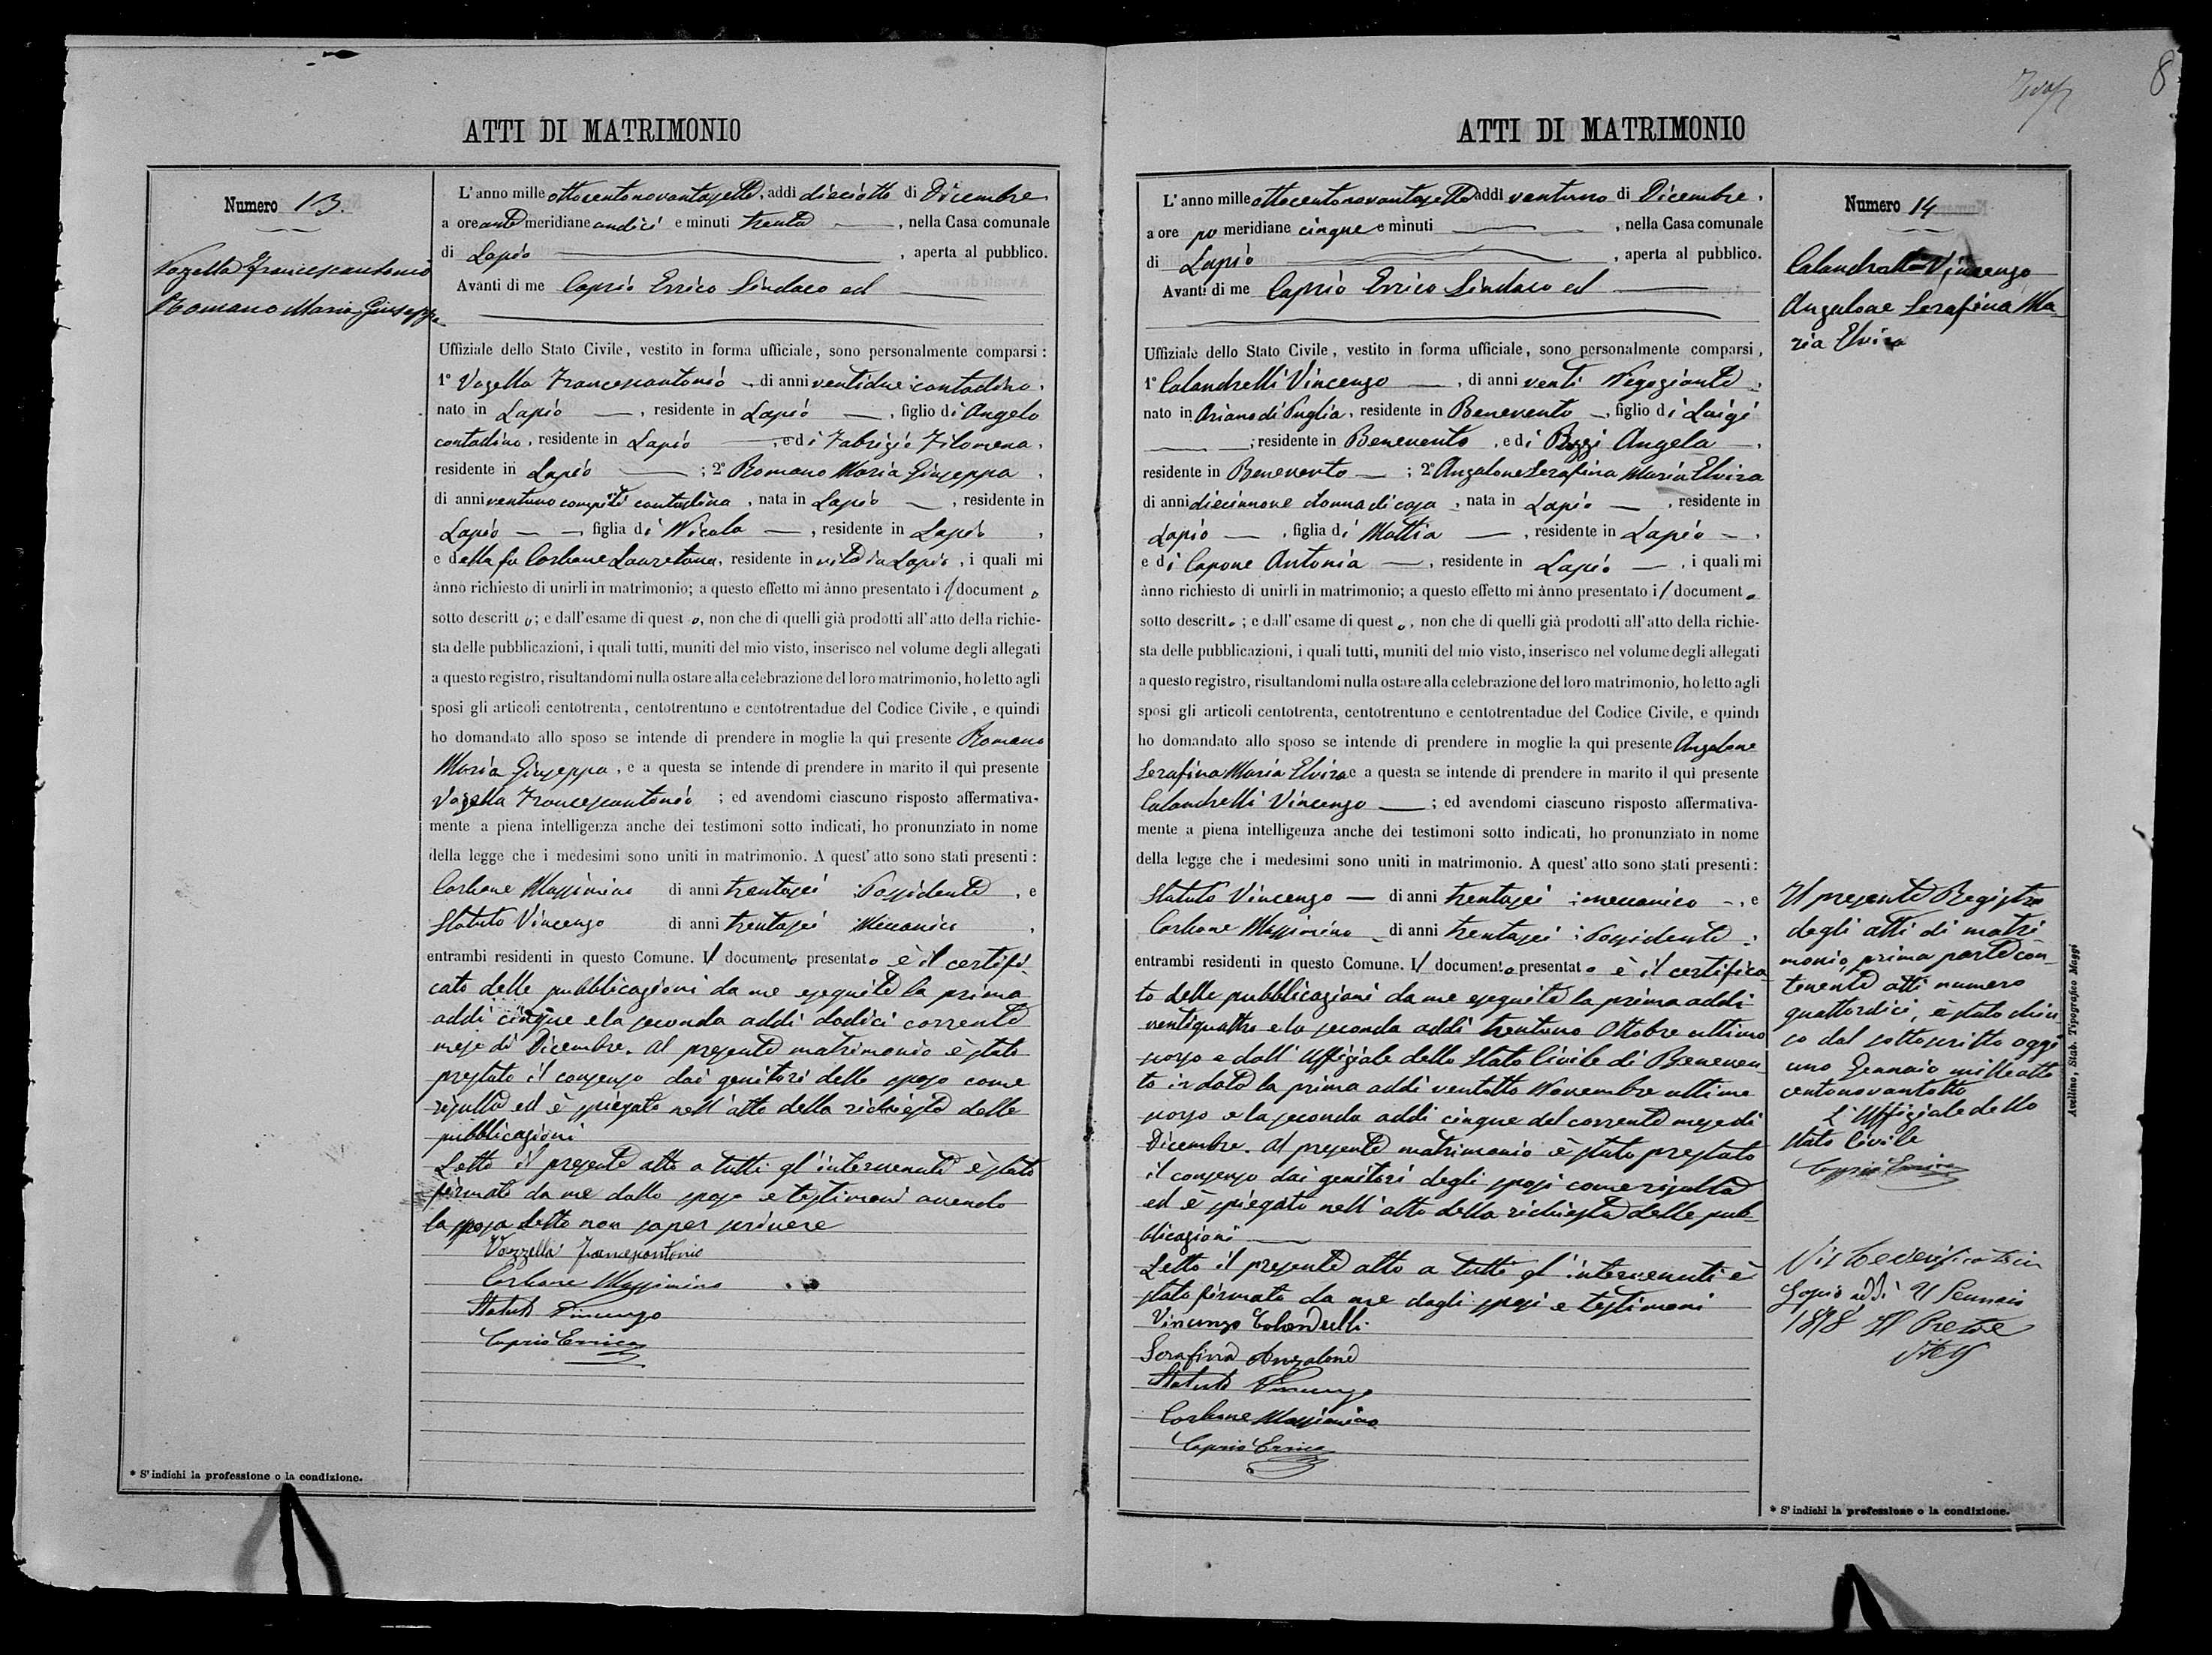 ATTI DI MATRIMONIO
Numero 13.
Vozella Francescantonio
Romano Maria Giuseppa
L'anno mille ottocentonovantasette, addì dieciotto di Dicembre
a ore ante meridiane undici e minuti trenta, nella Casa comunale
di Lapio, aperta al pubblico.
Avanti di me Caprio Errico Sindaco ed
Uffiziale dello Stato Civile, vestito in forma ufficiale, sono personalmente comparsi:
1° Vozella Francescantonio, di anni ventidue contadino,
nato in Lapio, residente in Lapio, figlio di Angelo
contadino, residente in Lapio, e di Fabrizio Filomena,
residente in Lapio; 2° Romano Maria Giuseppa,
di anni ventuno compiti contadina, nata in Lapio, residente in
Lapio, figlia di Nicola, residente in Lapio,
e della fu Carbone Lauretana, residente in vita in Lapio, i quali mi
ànno richiesto di unirli in matrimonio; a questo effetto mi ànno presentato il documento
sotto descritto; e dall'esame di questo, non che di quelli già prodotti all'atto della richie-
sta delle pubblicazioni, i quali tutti, muniti del mio visto, inserisco nel volume degli allegati
a questo registro, risultandomi nulla ostare alla celebrazione del loro matrimonio, ho letto agli
sposi gli articoli centotrenta, centotrentuno e centotrentadue del Codice Civile, e quindi
ho domandato allo sposo se intende di prendere in moglie la qui presente Romano
Maria Giuseppa, e a questa se intende di prendere in marito il qui presente
Vozella Francescantonio; ed avendomi ciascuno risposto affermativa-
mente a piena intelligenza anche dei testimoni sotto indicati, ho pronunziato in nome
della legge che i medesimi sono uniti in matrimonio. A quest'atto sono stati presenti:
Carbone Massimino di anni trentasei Possidente, e
Statuto Vincenzo di anni trentasei Meccanico,
entrambi residenti in questo Comune. Il documento presentato è il certifi-
cato delle pubblicazioni da me eseguite la prima
addì cinque e la seconda addì dodici corrente
mese di Dicembre. Al presente matrimonio è stato
prestato il consenso dai genitori dello sposo come
risulta ed è spiegato nell'atto della richiesta delle
pubblicazioni
Letto il presente atto a tutti gl'intervenuti è stato
firmato da me dallo sposo e testimoni avendo
la sposa detto non saper scrivere
Vozzella Francescantonio
Carbone Massimino
Statuto Vincenzo
Caprio Errico
* S'indichi la professione o la condizione.
8
ATTI DI MATRIMONIO
L'anno mille ottocentonovantasette addì ventuno di Dicembre,
a ore po meridiane cinque e minuti, nella Casa comunale
di Lapio, aperta al pubblico.
Avanti di me Caprio Errico Sindaco ed
Uffiziale dello Stato Civile, vestito in forma ufficiale, sono personalmente comparsi,
1° Calandrelli Vincenzo, di anni venti Negoziante,
nato in Ariano di Puglia, residente in Benevento, figlio di Luigi
; residente in Benevento, e di Pozzi Angela,
residente in Benevento; 2° Anzalone Serafina Maria Elvira
di anni diecinnove donna di casa, nata in Lapio, residente in
Lapio, figlia di Mattia, residente in Lapio,
e di Capone Antonia, residente in Lapio, i quali mi
ànno richiesto di unirli in matrimonio; a questo effetto mi ànno presentato il documento
sotto descritto; e dall'esame di questo, non che di quelli già prodotti all'atto della richie-
sta delle pubblicazioni, i quali tutti, muniti del mio visto, inserisco nel volume degli allegati
a questo registro, risultandomi nulla ostare alla celebrazione del loro matrimonio, ho letto agli
sposi gli articoli centotrenta, centotrentuno e centotrentadue del Codice Civile, e quindi
ho domandato allo sposo se intende di prendere in moglie la qui presente Anzalone
Serafina Maria Elvira e a questa se intende di prendere in marito il qui presente
Calandrelli Vincenzo; ed avendomi ciascuno risposto affermativa-
mente a piena intelligenza anche dei testimoni sotto indicati, ho pronunziato in nome
della legge che i medesimi sono uniti in matrimonio. A quest'atto sono stati presenti:
Statuto Vincenzo di anni trentasei meccanico, e
Carbone Massimino di anni trentasei Possidente;
entrambi residenti in questo Comune. Il documento presentato è il certifica-
to delle pubblicazioni da me eseguite la prima addì
ventiquattro e la seconda addì trentuno Ottobre ultimo
scorso e dall'Uffiziale dello Stato Civile di Beneven-
to in data la prima addì ventotto Novembre ultimo
scorso e la seconda addì cinque del corrente mese di
Dicembre. Al presente matrimonio è stato prestato
il consenso dai genitori degli sposi come risulta
ed è spiegato nell'atto della richiesta delle pub-
blicazioni
Letto il presente atto a tutti gl'intervenuti è
stato firmato da me dagli sposi e testimoni
Vincenzo Calandrelli
Serafina Anzalone
Statuto Vincenzo
Carbone Massimino
Caprio Errico
Numero 14
Calandrelli Vincenzo
Anzalone Serafina Ma-
ria Elvira
Il presente Registro
degli atti di matri
monio prima parte con-
tenente atti numero
quattordici, è stato chiu-
so dal sottoscritto oggi
uno Gennaio milleotto
centonovantotto
L'Uffiziale dello
Stato Civile
Caprio Errico
Visto e verificato in
Lapio addì Gennaio
1898 Il Pretore
* S'indichi la professione o la condizione.
Avellino, Stab. Tipografico Maggi